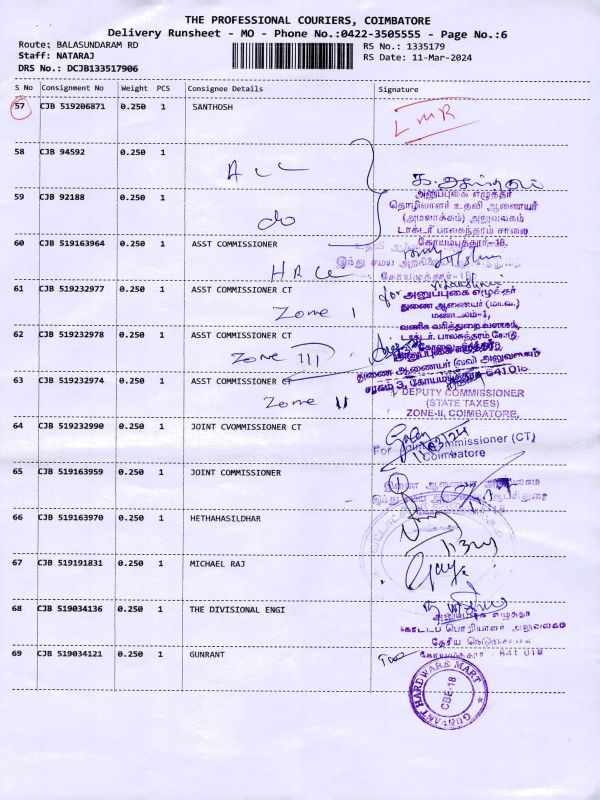 THE PROFESSIONAL COURIERS, COIMBATORE
Delivery Runsheet - MO - Phone No.:0422-3505555 - Page No.:6
Route: BALASUNDARAM RD
RS No.: 1335179
Staff: NATARAJ
RS Date: 11-Mar-2024
DRS No.: DCJB133517906
S No Consignment No Weight PCS Consignee Details Signature
57 CJB 519206871 0.250 1 SANTHOSH
LMR
58 CJB 94592 0.250 1
ACC
அனுப்புகை எழுத்தர்
59 CJB 92188 0.250 1
do
தொழிலாளர் உதவி ஆணையர்
(அமலாக்கம்) அலுவலகம்
டாக்டர் பாலசுந்தரம் சாலை
கோயம்புத்தூர்-18.
60 CJB 519163964 0.250 1 ASST COMMISSIONER
HRCE
இந்து சமய
61 CJB 519232977 0.250 1 ASST COMMISSIONER CT
Zone I
for
அனுப்புகை எழுத்தர்
துணை ஆணையர் (மா.வ.)
மண்டலம்-1,
வணிக வரித்துறை வளாகம்,
டாக்டர். பாலசுந்தரம் ரோடு,
62 CJB 519232978 0.250 1 ASST COMMISSIONER CT
Zone III
அனுப்புகை எழுத்தர்
துணை ஆணையர்
சரகம் 3, கோயம்புத்தூர் 641 018
63 CJB 519232974 0.250 1 ASST COMMISSIONER CT
Zone II
DEPUTY COMMISSIONER
(STATE TAXES)
ZONE-II, COIMBATORE.
64 CJB 519232990 0.250 1 JOINT CVOMMISSIONER CT
11/03/24
For Joint Commissioner (CT)
Coimbatore
65 CJB 519163959 0.250 1 JOINT COMMISSIONER
66 CJB 519163970 0.250 1 HETHAHASILDHAR
67 CJB 519191831 0.250 1 MICHAEL RAJ
68 CJB 519034136 0.250 1 THE DIVISIONAL ENGI
அனுப்புகை எழுத்தர்
கோட்டப் பொறியாளர் அலுவலகம்
தேசிய நெடுஞ்சாலை
கோயம்புத்தூர் - 641 018
69 CJB 519034121 0.250 1 GUNRANT
GUNVANT HARDWARE MART
CBE-18